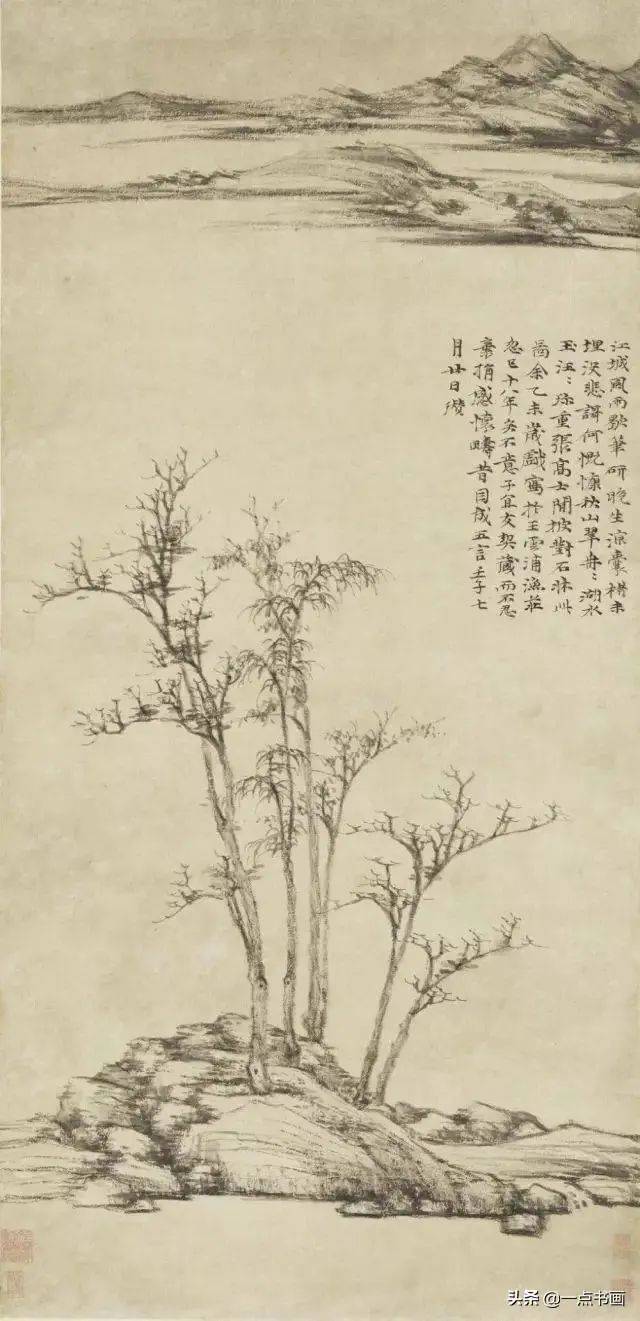 江城風雨歇筆研晚生涼囊楮未
埋没悲謌何慨慷秋山翠冉〻湖水
玉汪〻珍重張高士閒披對石牀此
圖余乙未歲戲寫於王雲浦漁莊
忽已十八年矣不意子宜友契藏而不忍
棄捐感懷疇昔因成五言壬子七
月廿日瓚
头条 @一点书画